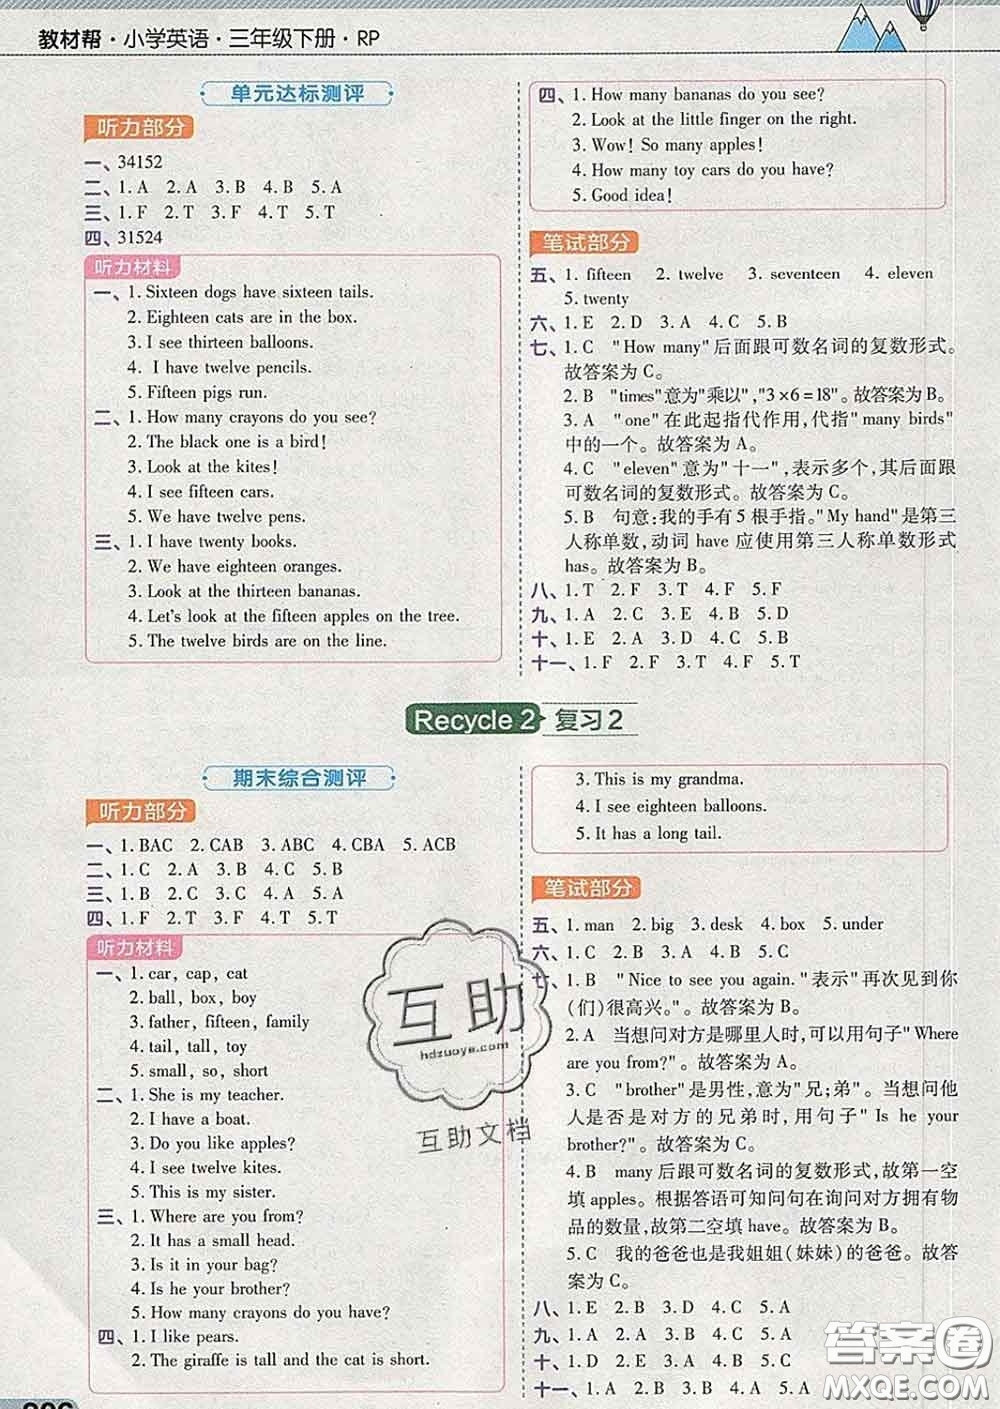 教材帮·小学英语·三年级下册·RP
单元达标测评
听力部分
一、34152
二、1. A 2. A 3. B 4. B 5. A
三、1. F 2. T 3. F 4. T 5. T
四、31524
听力材料
一、1. Sixteen dogs have sixteen tails.
2. Eighteen cats are in the box.
3. I see thirteen balloons.
4. I have twelve pencils.
5. Fifteen pigs run.
二、1. How many crayons do you see?
2. The black one is a bird!
3. Look at the kites!
4. I see fifteen cars.
5. We have twelve pens.
三、1. I have twenty books.
2. We have eighteen oranges.
3. Look at the thirteen bananas.
4. Let's look at the fifteen apples on the tree.
5. The twelve birds are on the line.
四、1. How many bananas do you see?
2. Look at the little finger on the right.
3. Wow! So many apples!
4. How many toy cars do you have?
5. Good idea!
笔试部分
五、1. fifteen 2. twelve 3. seventeen 4. eleven
5. twenty
六、1. E 2. D 3. A 4. C 5. B
七、1. C "How many"后面跟可数名词的复数形式。
故答案为 C。
2. B "times"意为"乘以","3×6=18"。故答案为 B。
3. A "one"在此起指代作用,代指"many birds"
中的一个。故答案为 A。
4. C "eleven"意为"十一",表示多个,其后面跟
可数名词的复数形式。故答案为 C。
5. B 句意:我的手有 5 根手指。"My hand"是第三
人称单数,动词 have 应使用第三人称单数形式
has。故答案为 B。
八、1. T 2. F 3. T 4. F 5. F
九、1. A 2. C 3. E 4. B 5. D
十、1. E 2. A 3. D 4. B 5. C
十一、1. F 2. F 3. T 4. F 5. T
Recycle 2 复习 2
期末综合测评
听力部分
一、1. BAC 2. CAB 3. ABC 4. CBA 5. ACB
二、1. C 2. A 3. B 4. C 5. A
三、1. B 2. C 3. C 4. A 5. B
四、1. F 2. T 3. F 4. T 5. T
听力材料
一、1. car, cap, cat
2. ball, box, boy
3. father, fifteen, family
4. tail, tall, toy
5. small, so, short
二、1. She is my teacher.
2. I have a boat.
3. Do you like apples?
4. I see twelve kites.
5. This is my sister.
三、1. Where are you from?
2. It has a small head.
3. Is it in your bag?
4. Is he your brother?
5. How many crayons do you have?
四、1. I like pears.
2. The giraffe is tall and the cat is short.
3. This is my grandma.
4. I see eighteen balloons.
5. It has a long tail.
笔试部分
五、1. man 2. big 3. desk 4. box 5. under
六、1. C 2. B 3. A 4. B 5. C
七、1. B "Nice to see you again."表示"再次见到你
(们)很高兴。"。故答案为 B。
2. A 当想问对方是哪里人时,可以用句子"Where
are you from?"。故答案为 A。
3. C "brother"是男性,意为"兄;弟"。当想问他
人是否是对方的兄弟时,用句子"Is he your
brother?"。故答案为 C。
4. B many 后跟可数名词的复数形式,故第一空
填 apples。根据答语可知问句在询问对方拥有物
品的数量,故第二空填 have。故答案为 B。
5. C 我的爸爸也是我姐姐(妹妹)的爸爸。故答
案为 C。
八、1. E 2. B 3. D 4. C 5. A
九、1. A 2. A 3. B 4. B 5. A
十、1. D 2. E 3. B 4. C 5. A
十一、1. F 2. T 3. F 4. T 5. T
互助
hdzuoye.com
互助文档
答案圈
MXQE.COM